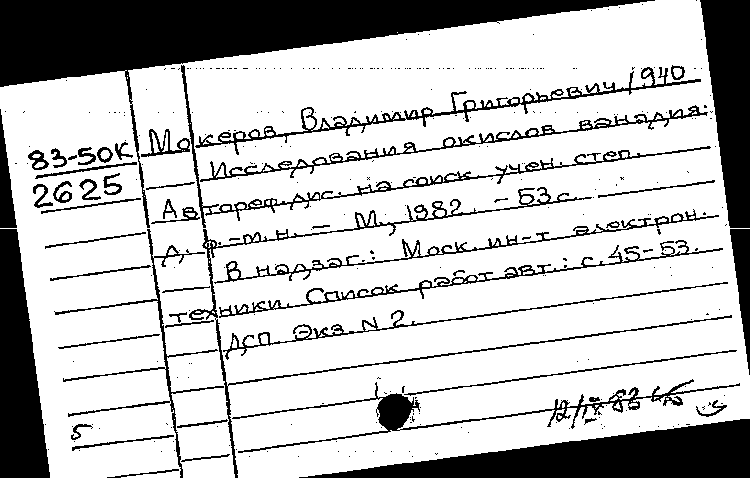 83-50К
2625
Мокеров, Владимир Григорьевич, 1940
Исследования окислов ванадия:
Автореф. дис. на соиск. учен. степ.
д. ф.-м. н. - М., 1982. - 53 с.
В надзаг.: Моск. ин-т электрон.
техники. Список работ авт.: с. 45-53.
ДСП. Экз. N 2.
5
12/IX 83